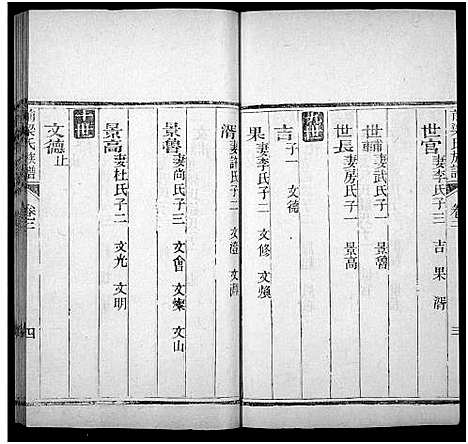 梁氏族譜
卷二
三
世官 妻李氏子三 吉 果 湑
世輔 妻武氏子一 景魯
世長 妻房氏子一 景高
九世
吉 子一 文德
果 妻李氏子二 文修 文煥
湑 妻許氏子二 文澄
景魯 妻尚氏子三 文會 文燦 文山
景高 妻杜氏子二 文光 文明
十世
文德 止
前梁氏族譜
四